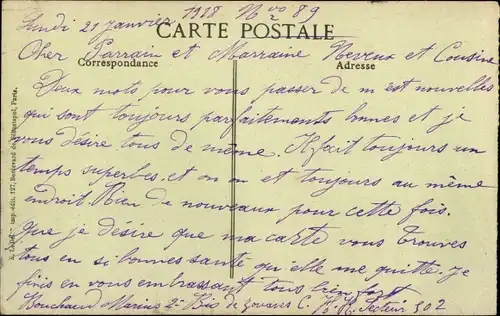 Lundi 21 Janvier 1918 N° 89
CARTE POSTALE
Cher Parrain et Marraine Neveux et Cousine
Correspondance Adresse
Deux mots pour vous passer de m est nouvelles
qui sont toujours parfaitements bonnes et je
vous désire tous de même. Il fait toujours un
temps superbes. et on en et toujours au même
endroit. Rien de nouveaux pour cette fois.
Que je désire que ma carte vous Trouves
tous en si bonnes santé qu'elle me quitte. Je
finis en vous embrassant tous bien fort
Bouchaud Marius 2e Bis de zouaves C. H. R. Secteur 502
Imp.-édit. 127, Boulevard de Sébastopol, Paris.